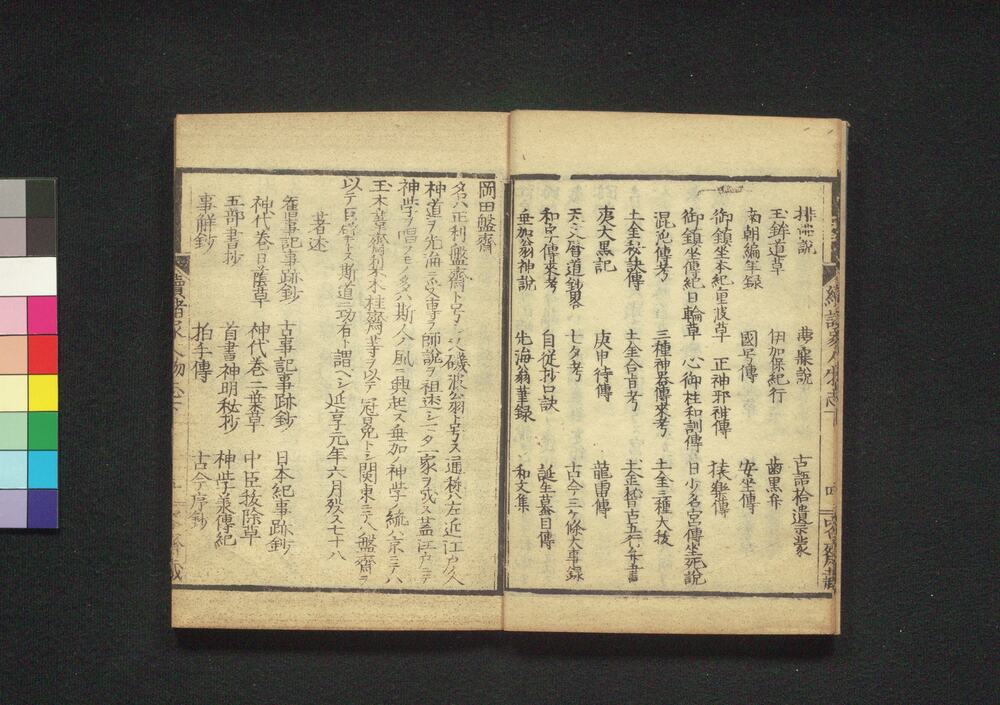 排佛說　夢寐說　古語拾遺示蒙
玉鉾道草　伊加保紀行　齒黒弁
南朝編年録　國号傳　安坐傳
御鎮坐本紀室波草　正神邪祥傳　猿樂傳
御鎮坐傳紀日輪草　心御柱和訓傳　日少名宮傳坐死說
混沌傳考　三種神器傳來考　土金三種大祓
土金秘訣傳　土金合旨考　土金稽古五行弁書
庚大黒記　庚申待傳　龍雷傳
天文暦道鈔畧　七夕考　古今三ケ條大事録
和字傳來考　自從抄口訣　誕生蟇目傳
垂加翁神說　先海翁菫録　和文集
岡田盤齋
名ハ正利盤齋ト号シ又磯波翁ト号ス通称ハ左近江戸人
神道ヲ先海ニ受ク専ヲ師說ヲ祖述シテ一家ヲ成ス蓋江戸ニテ
神學ヲ唱フモノ多ハ斯人ノ風ニ興起ス垂加ノ神學ノ統ハ京ニテハ
玉木葦齋若林木柱齋等ヲ以テ冠冕トシ関東ニテハ盤齋ヲ
以テ巨擘トス斯道ニ功有ト謂ベシ延享元年六月殁ス七十八
著述
舊事記事跡鈔　古事記事跡鈔　日本紀事跡鈔
神代卷日蔭草　神代卷二葉草　中臣祓除草
五部書抄　首書神明秘抄　神學承傳紀
事解鈔　拍手傳　古今序抄
續諸家人物志下